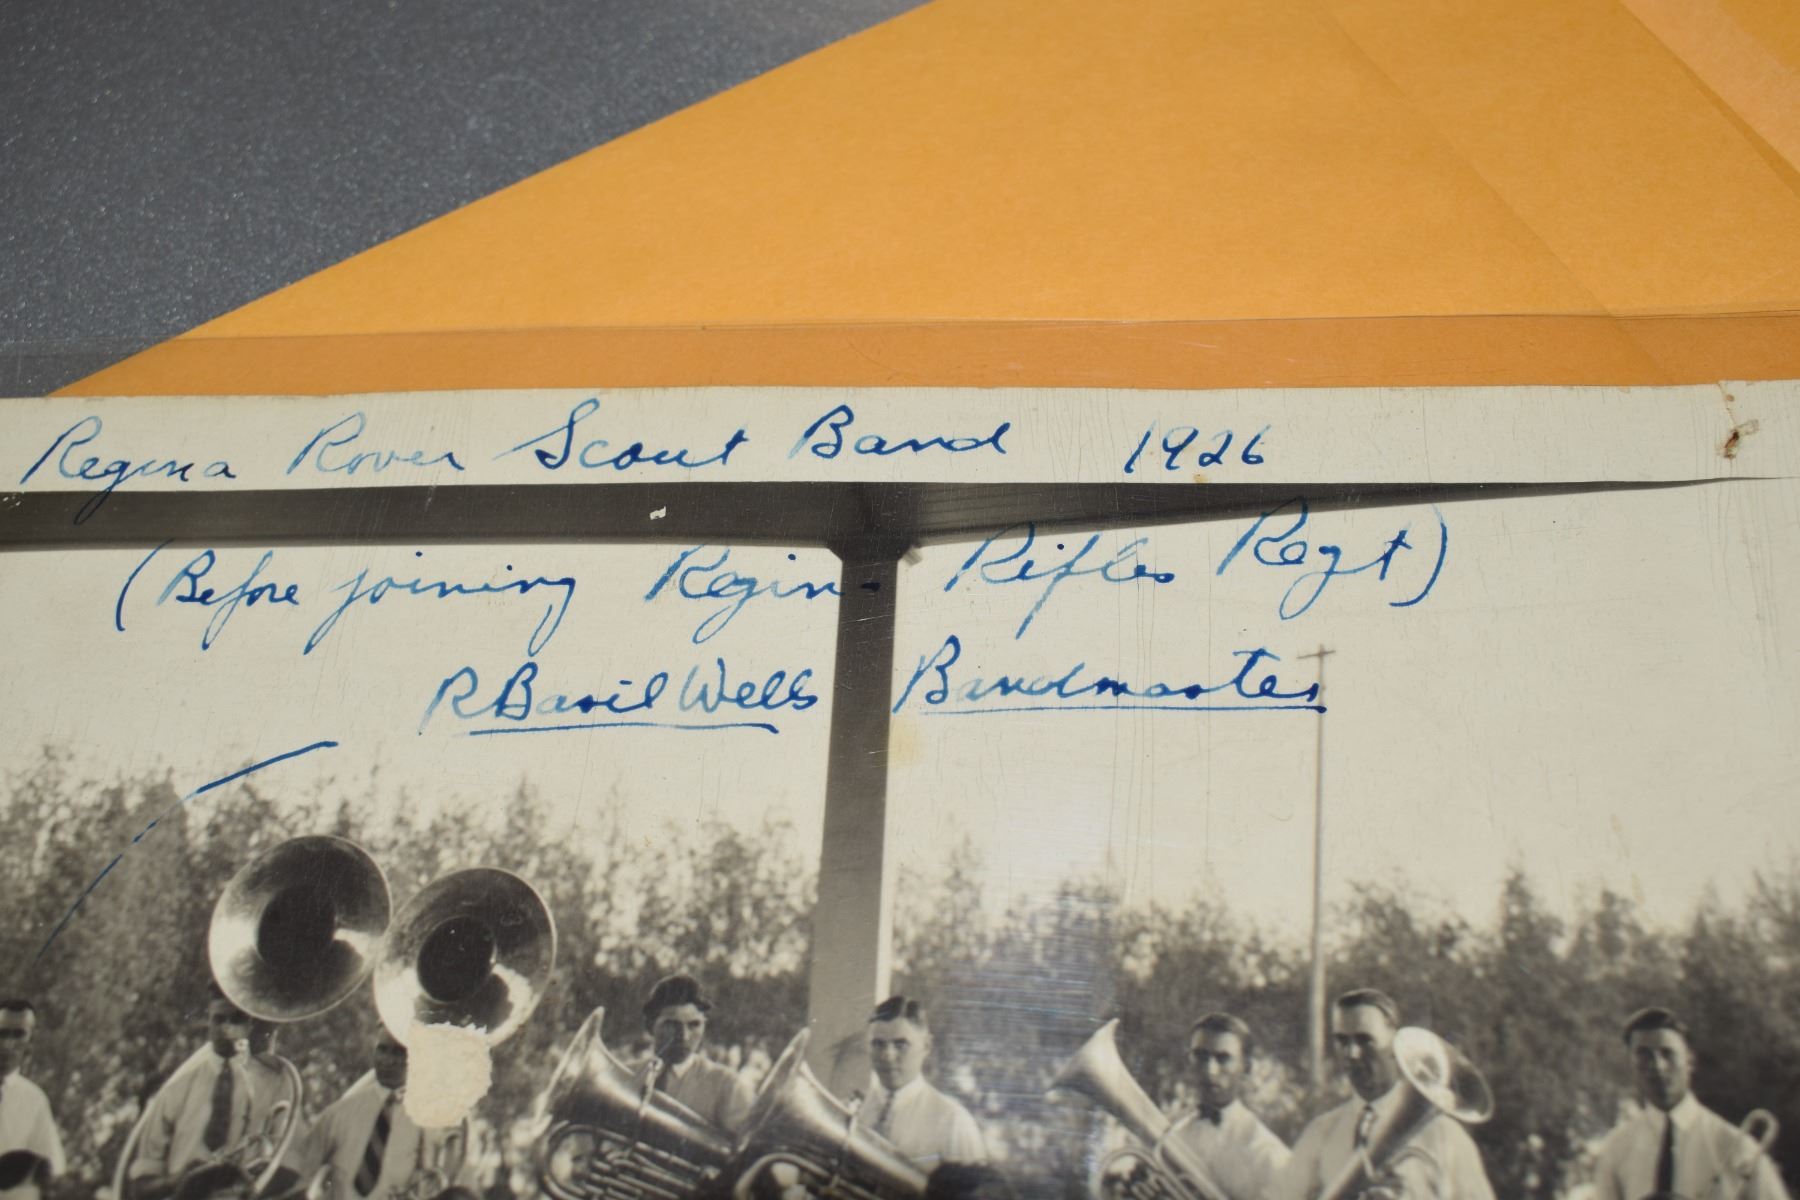 Regina Rover Scout Band 1926
(Before joining Regina Rifles Regt)
R Basil Wells Bandmaster